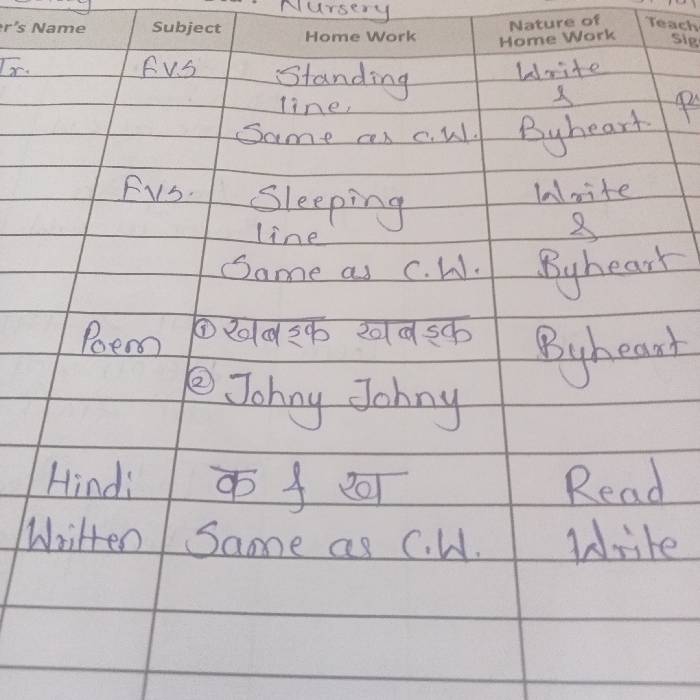 Nursery
er's Name Subject Home Work Nature of Home Work Teach Sig
Tr. EVS Standing Write
line, &
Same as C.W. Byheart
EVS. Sleeping Write
line &
Same as C.W. Byheart
Poem ① खबड़क खबड़क Byheart
② Johny Johny
Hindi क & ख Read
Written Same as C.W. Write